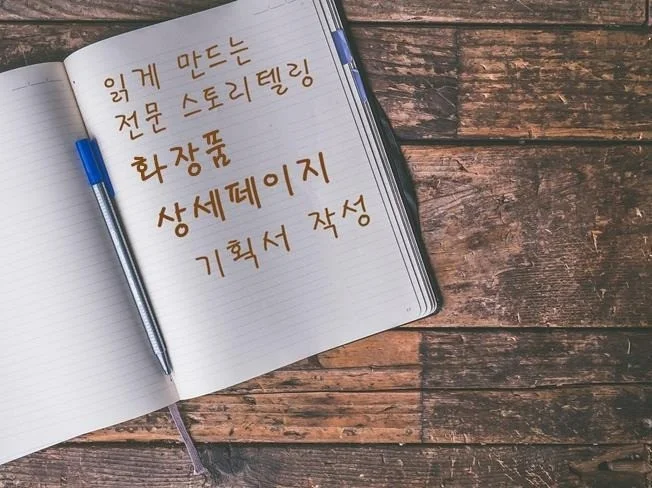 읽게 만드는
전문 스토리텔링
화장품
상세페이지
기획서 작성